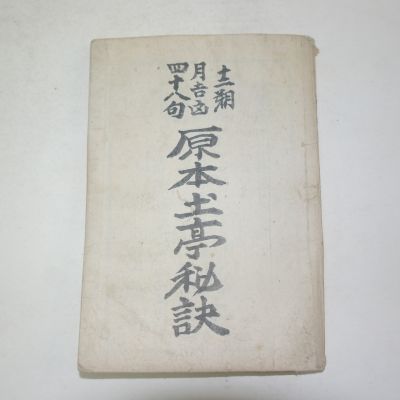 十二朔
月吉凶
四十八句
原本土亭秘訣